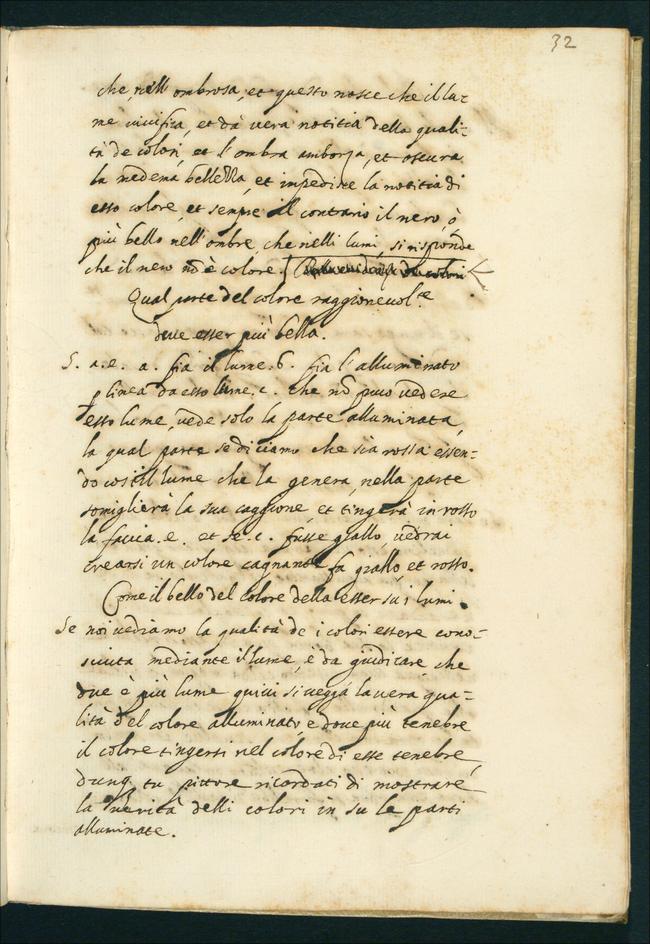 32
che, nell' ombrosa, et questo nasce che il lu=
me vivifica, et dà vera notitia della quali=
tà de colori, et l'ombra amorza, et oscura
la medema bellezza, et impedisce la notitia di
esso colore, et sempre al contrario il nero, ò
più bello nell'ombre, che nelli lumi, si risponde
che il nero nō è colore.
Qual parte del colore raggionevol.te
deve esser più bella.
S. a.e. a. fia il lume. 6. fia l'alluminato
linea da esso lume. c. che nō può vedere
esso lume, vede solo la parte alluminata,
la qual parte se diciamo che sia rossa essen=
do così il lume che la genera, nella parte
somiglierà la sua caggione, et tingerà in rosso
la faccia. e. et se. c. fusse giallo, vedrai
crearsi un colore cagnante fa giallo, et rosso.
Come il bello del colore della esser su i lumi.
Se noi vediamo la qualità de i colori essere cono=
sciuta mediante il lume, è da giudicare, che
dve è più lume quivi si veggia la vera qua=
lità del colore alluminato, e dove più tenebre
il colore tingersi nel colore di esse tenebre,
dunq. tu pittore ricordati di mostrare
la verità delli colori in su le parti
alluminate.